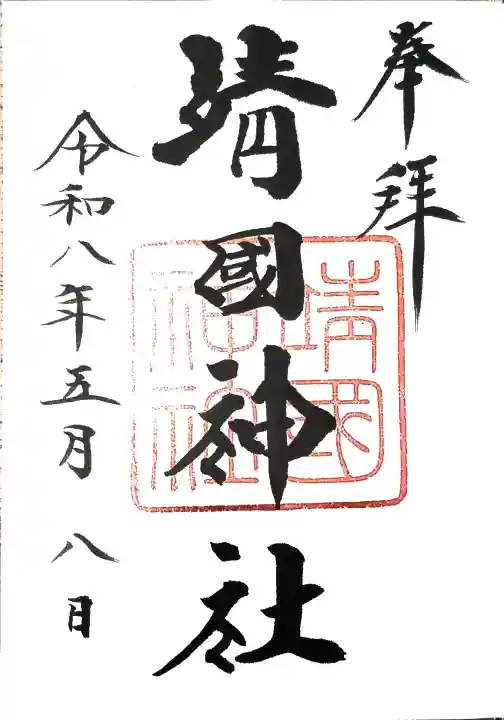 奉拝
靖國神社
靖国神社
令和八年五月八日